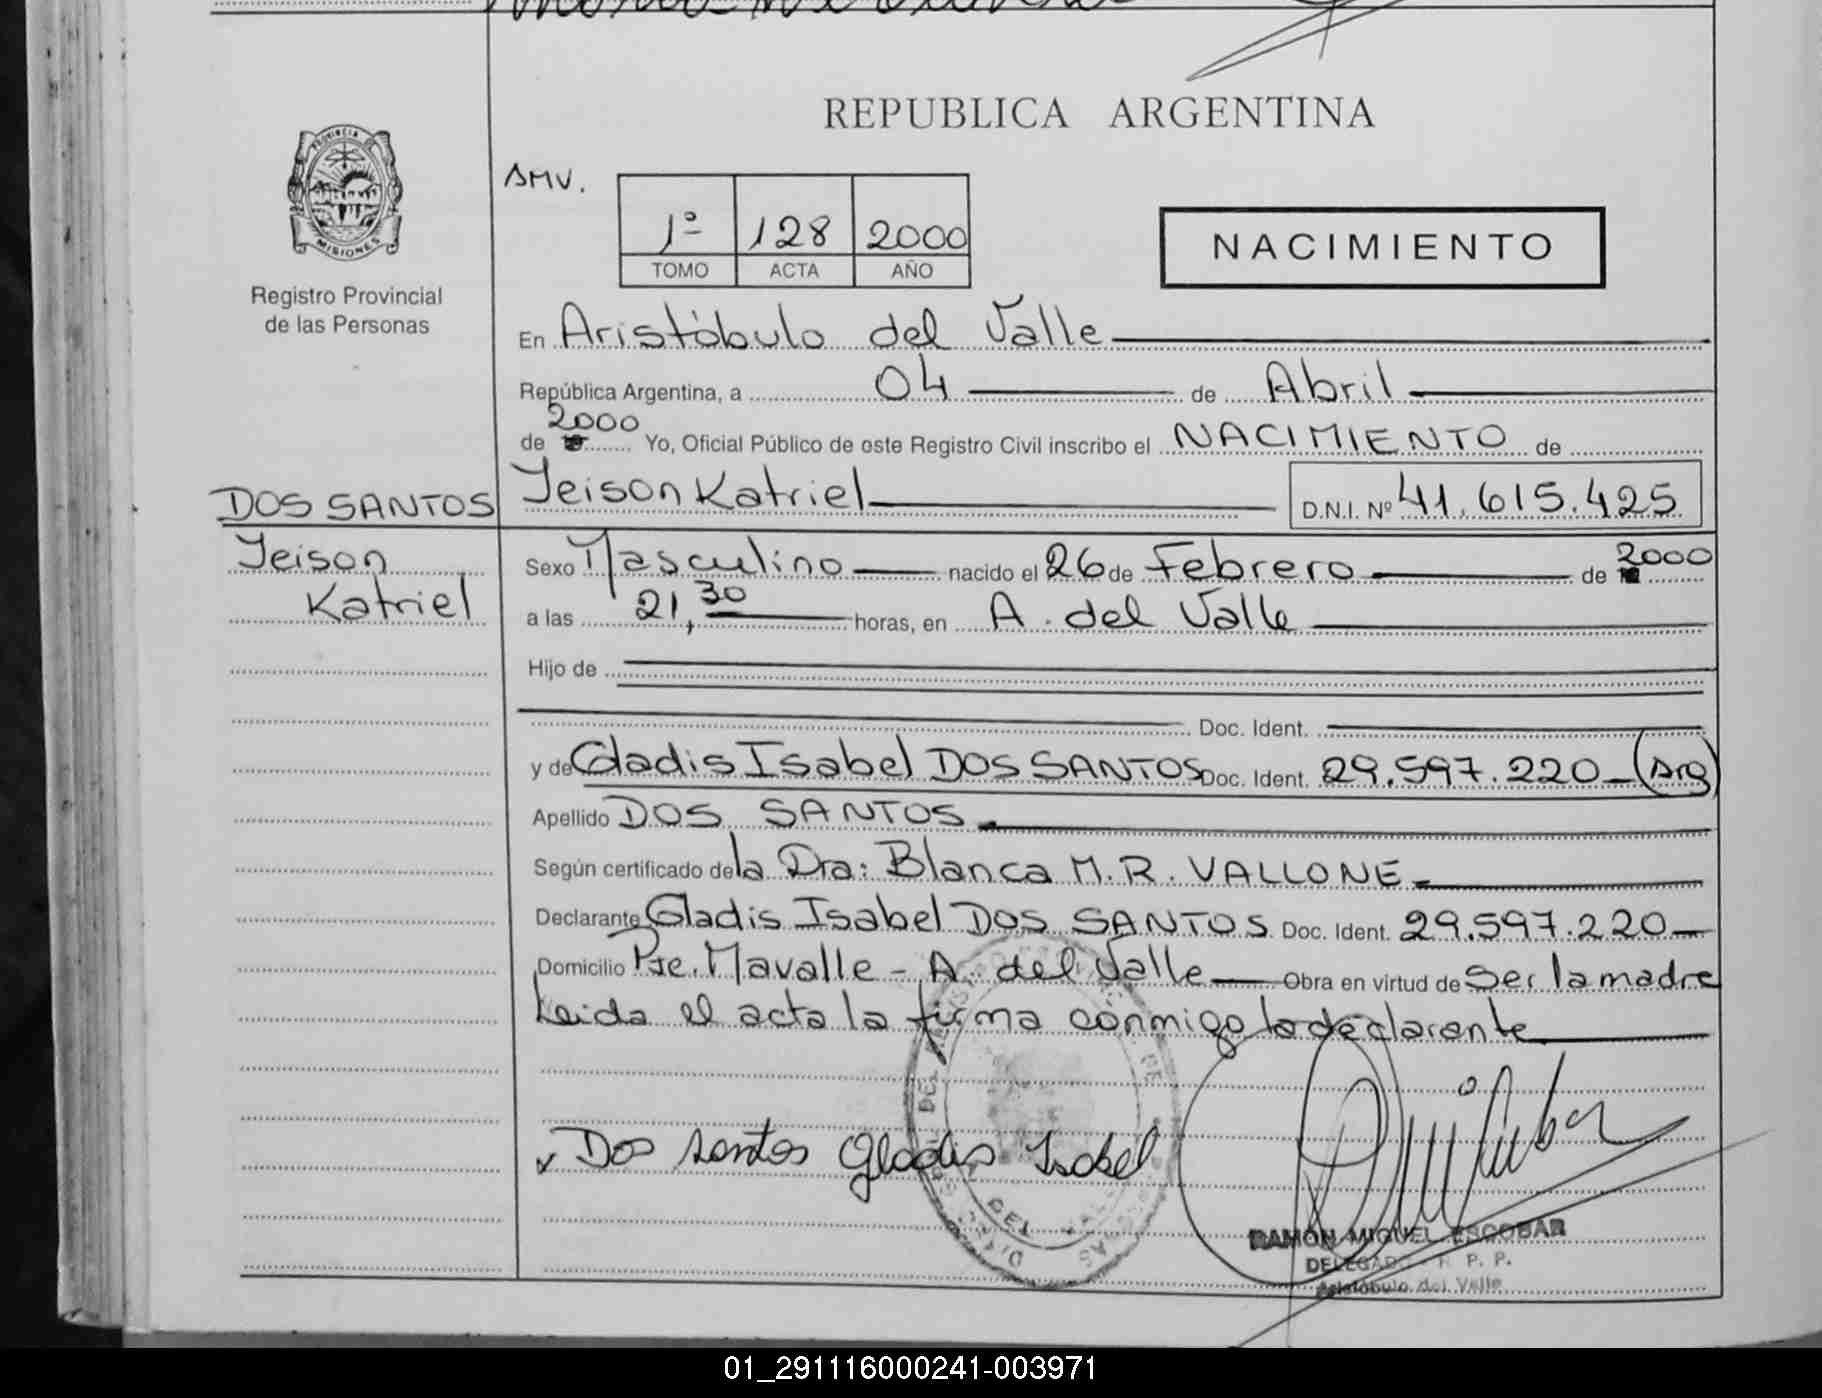 REPUBLICA ARGENTINA
PROVINCIA DE
MISIONES
Registro Provincial
de las Personas
SMV.
1º 128 2000
TOMO ACTA AÑO
NACIMIENTO
En Aristóbulo del Valle
República Argentina, a 04 de Abril
de 2000 Yo, Oficial Público de este Registro Civil inscribo el NACIMIENTO de
DOS SANTOS
Yeison Katriel D.N.I. Nº 41.615.425
Yeison
Katriel
Sexo Masculino nacido el 26 de Febrero de 2000
a las 21,30 horas, en A. del Valle
Hijo de
Doc. Ident.
y de Gladis Isabel DOS SANTOS Doc. Ident. 29.597.220 (Arg)
Apellido DOS SANTOS
Según certificado de la Dra: Blanca M.R. VALLONE
Declarante Gladis Isabel DOS SANTOS Doc. Ident. 29.597.220
Domicilio Pje. Mavalle - A. del Valle Obra en virtud de Ser la madre
Leida el acta la firma conmigo la declarante
Dos santos Gladis Isabel
RAMON MIGUEL ESCOBAR
DELEGADO R. P. P.
Aristóbulo del Valle
01_291116000241-003971